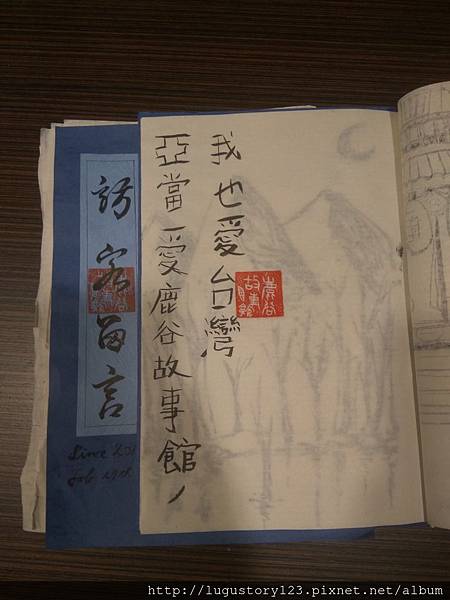 我也愛台灣
亞當愛鹿谷故事館
鹿谷
故事館
訪客留言
Since
http://lugustory123.pixnet.net/album